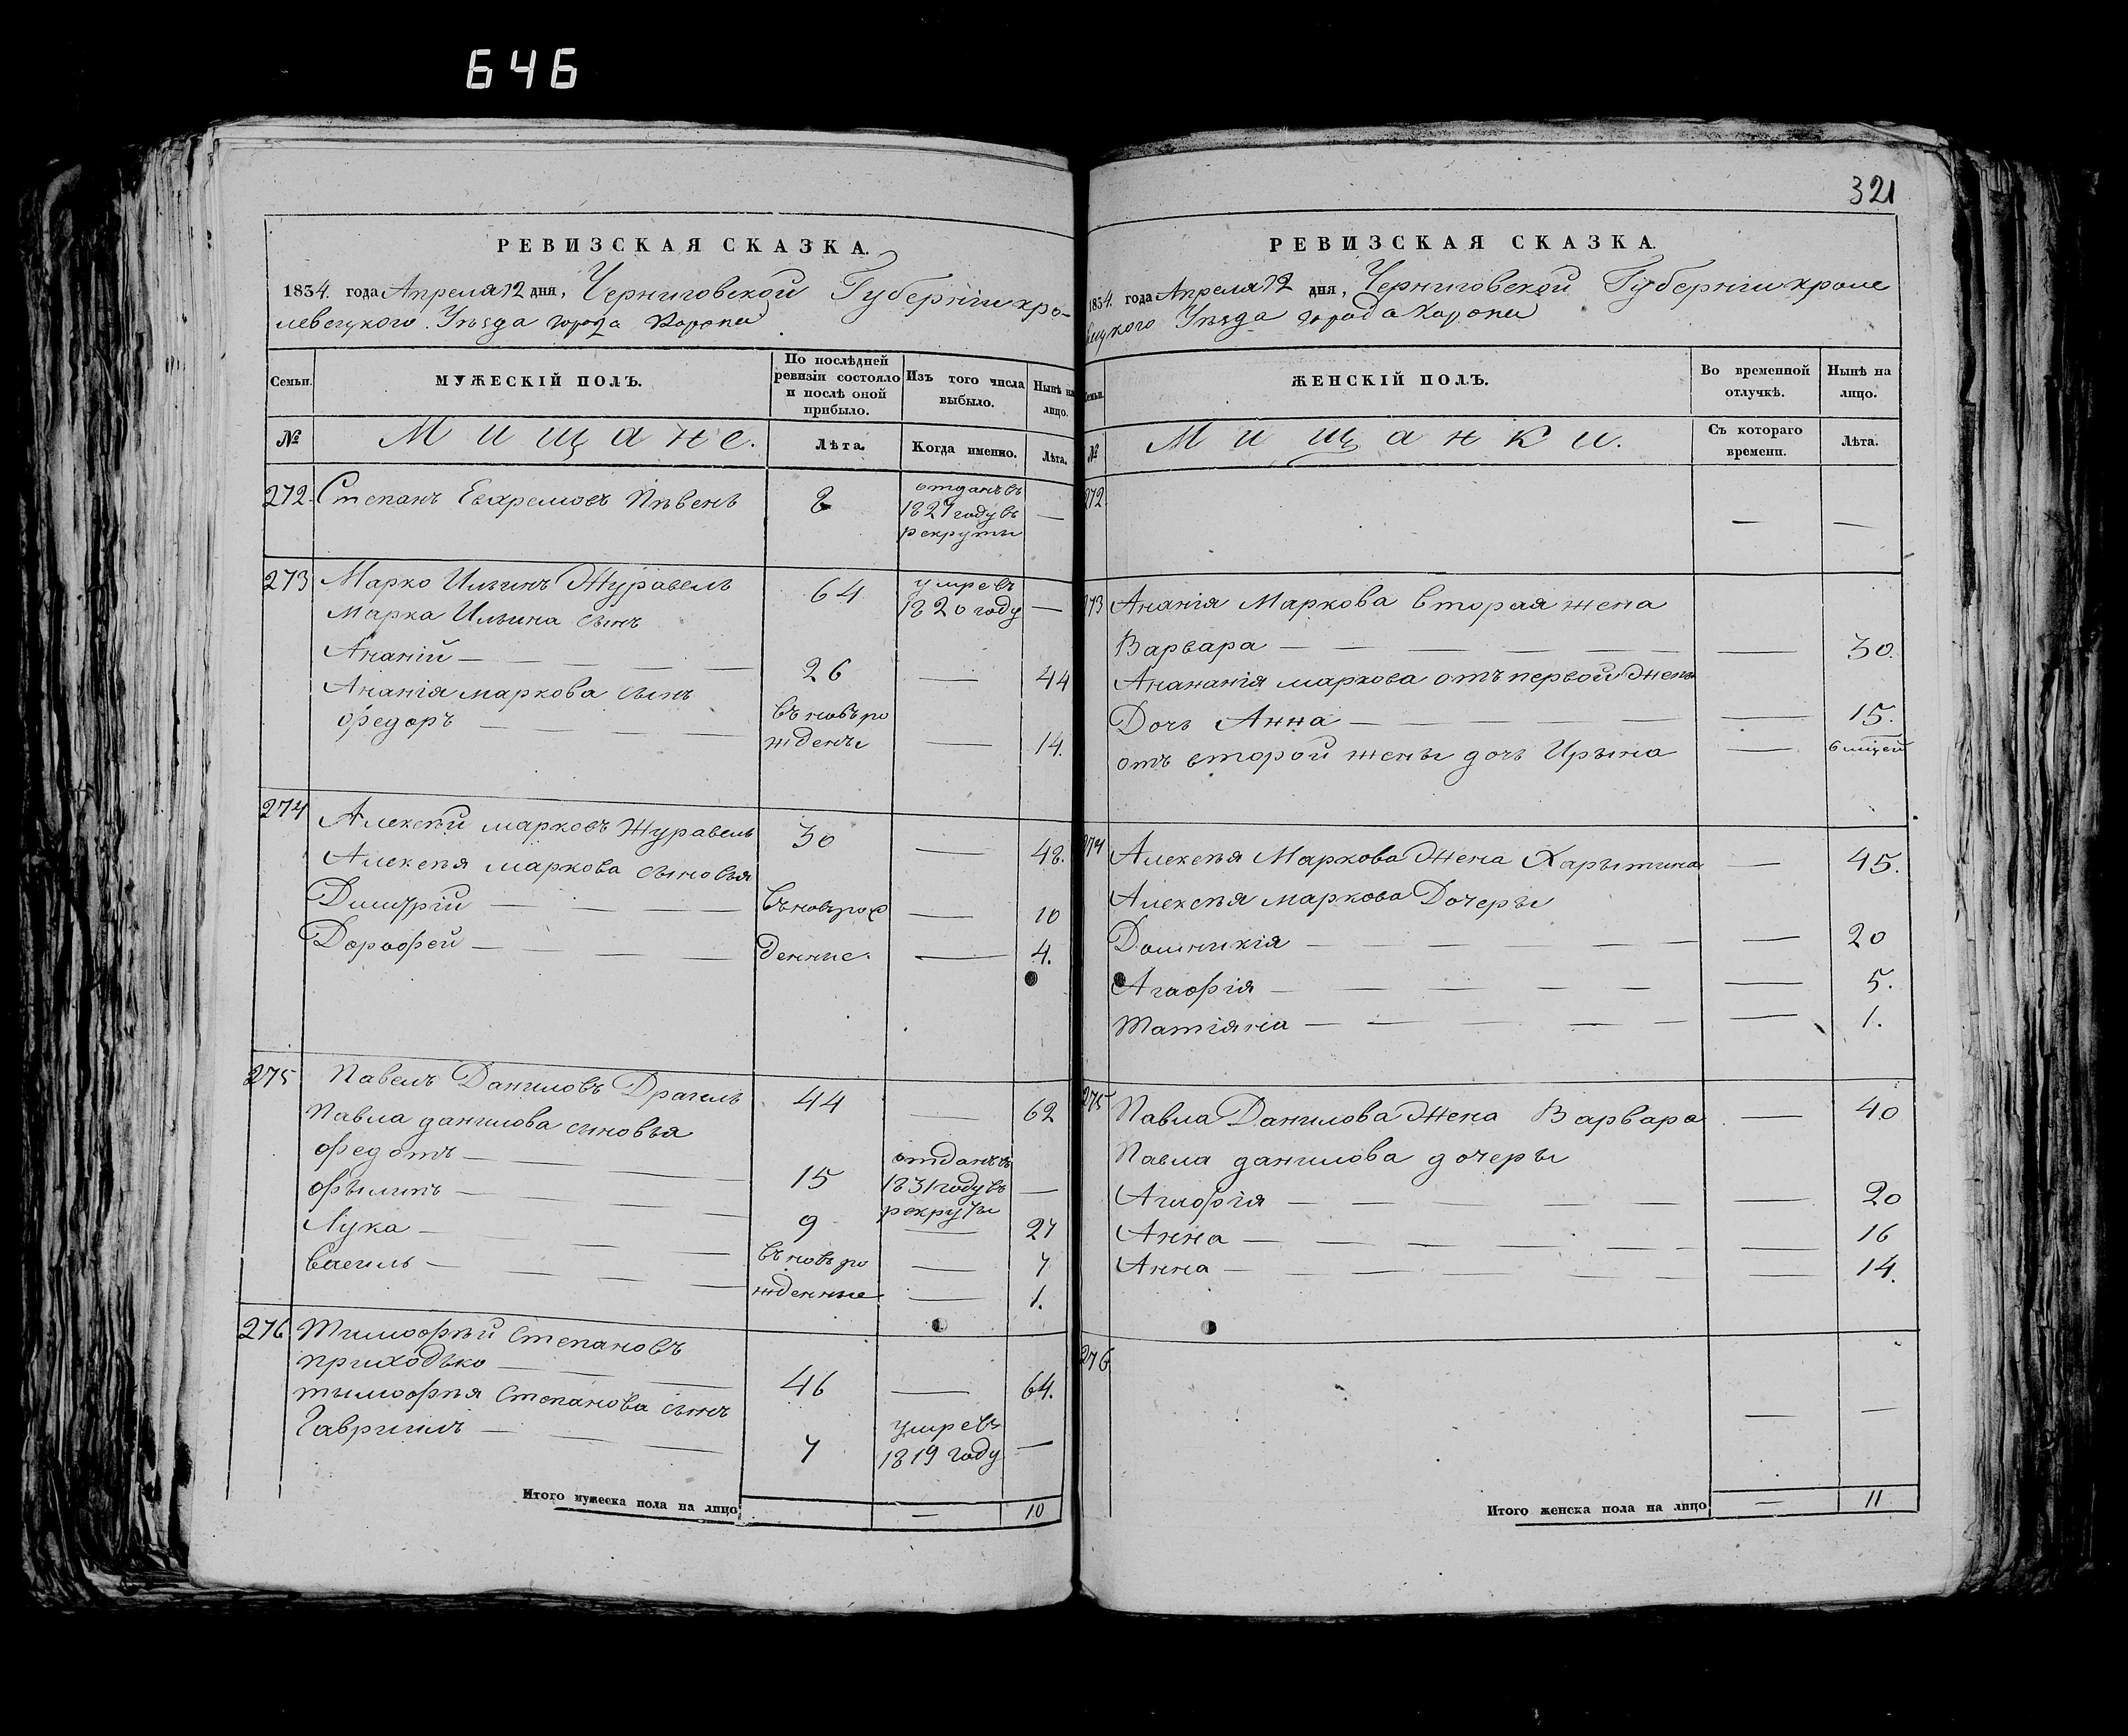 646
РЕВИЗСКАЯ СКАЗКА.
1834. года Апреля 12 дня, Черниговской Губерніи кро-
левецкого Уѣзда города Коропа
Семьи.
МУЖЕСКІЙ ПОЛЪ.
По послѣдней ревизіи состояло и послѣ оной прибыло.
Изъ того числа выбыло.
Нынѣ на лицо.
№
Мищане.
Лѣта.
Когда именно.
Лѣта.
272. Степанъ Евхремовъ Пѣвень 8 отданъ въ 1827 году въ рекруты —
273 Марко Ильинъ Журавель 64 умре въ 1820 году —
Марка Ильина сынъ
Ананій — 26 — 44
Ананія маркова сынъ
Федоръ — въновъ рожденъ — 14.
274 Алексѣй марковъ Журавель 30 — 48.
Алексѣя маркова сыновья
Димитрій — въновь рож — 10
Дорофей — денные. — 4.
275 Павелъ Даниловъ Драгель 44 — 62
Павла данилова сыновья
Федотъ — 15 отданъ въ 1831 году въ рекруты —
Фылипъ — 9 — 27
Лука — въновь ро — 7
Василь — жденные — 1.
276 Тимофѣй Степановъ
приходько — 46 — 64.
тымофѣя Степанова сынъ
Гавриилъ — 7 умре въ 1819 году —
Итого мужеска пола на лицо — 10
321
РЕВИЗСКАЯ СКАЗКА.
1834. года Апреля 12 дня, Черниговской Губерніи кроле
вецкого Уѣзда города Коропа
Семьи.
ЖЕНСКІЙ ПОЛЪ.
Во временной отлучкѣ.
Нынѣ на лицо.
№
Мищанки.
Съ котораго времени.
Лѣта.
272. — —
273 Ананія Маркова вторая жена
Варвара — — 30.
Ананагія маркова отъ первой жены
Дочь Анна — — 15.
отъ второй жены дочь Ирына — 6 мцей
274 Алексѣя Маркова Жена Харытина — 45.
Алексѣя маркова Дочеры
Домникія — — 20
Агафія — — 5.
Татіяна — — 1.
275 Павла Данилова Жена Варвара — 40
Павла данилова дочеры
Агафія — — 20
Анна — — 16
Анна — — 14.
276 — —
Итого женска пола на лицо — 11